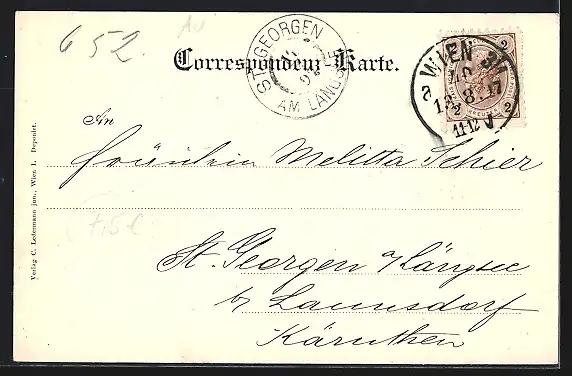 652.
Au
Correspondenz-Karte.
ST. GEORGEN
AM LÄNGSEE
WIEN
8. 17
11-12 V
2
2
2
An
Fräulein Melitta Schier
7,5 €
St. Georgen a/Längsee
b/ Launsdorf
Kärnthen
Verlag C. Ledermann jun., Wien I. Deponirt.